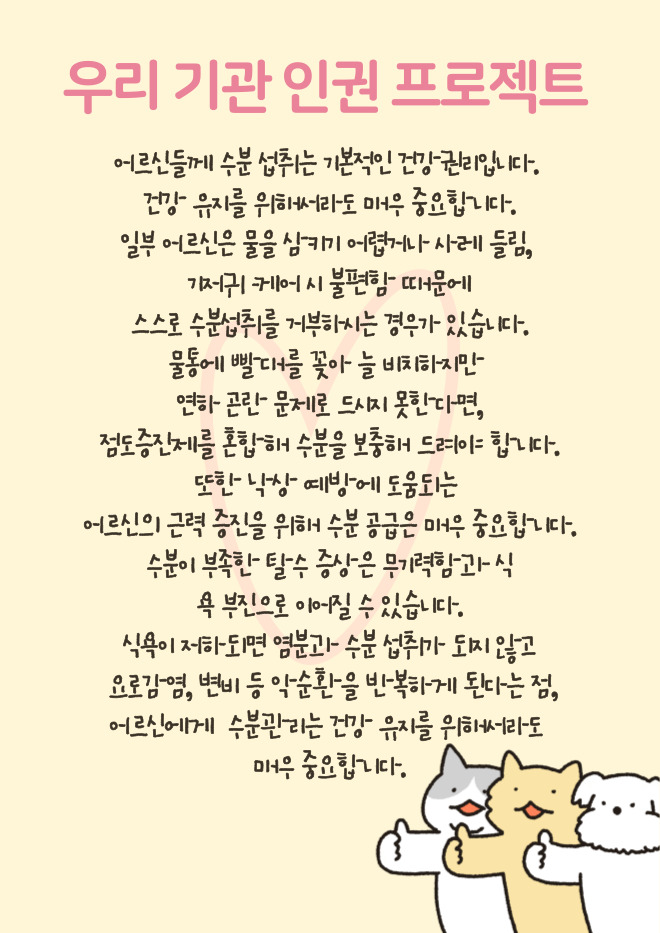 우리 기관 인권 프로젝트
어르신들께 수분 섭취는 기본적인 건강권리입니다.
건강 유지를 위해서라도 매우 중요합니다.
일부 어르신은 물을 삼키기 어렵거나 사레 들림,
기저귀 케어 시 불편함 때문에
스스로 수분섭취를 거부하시는 경우가 있습니다.
물통에 빨대를 꽂아 늘 비치하지만
연하 곤란 문제로 드시지 못한다면,
점도증진제를 혼합해 수분을 보충해 드려야 합니다.
또한 낙상 예방에 도움되는
어르신의 근력 증진을 위해 수분 공급은 매우 중요합니다.
수분이 부족한 탈수 증상은 무기력함과 식
욕 부진으로 이어질 수 있습니다.
식욕이 저하되면 염분과 수분 섭취가 되지 않고
요로감염, 변비 등 악순환을 반복하게 된다는 점,
어르신에게 수분관리는 건강 유지를 위해서라도
매우 중요합니다.